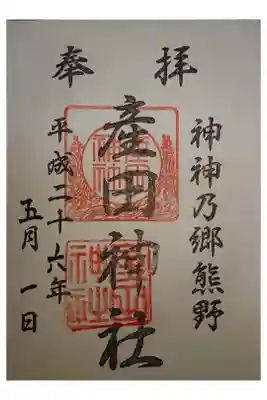 奉拝
神神乃郷熊野
産田神社
平成二十六年
五月一日